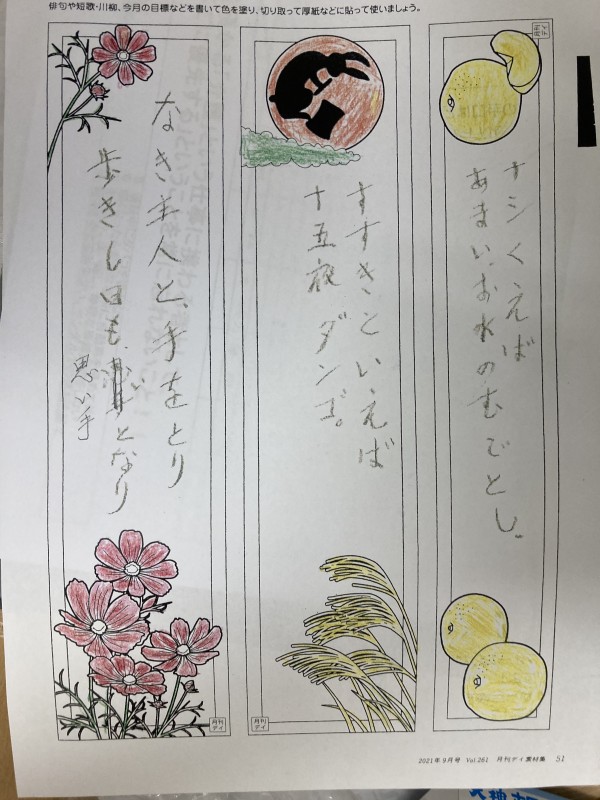 俳句や短歌・川柳、今月の目標などを書いて色を塗り、切り取って厚紙などに貼って使いましょう。
月刊デイ
ナシくえば
あまい、お水の
すすきといえば
十五夜 ダンゴ。
なき主人と、手をとり
歩きし日も
となり
思い手
月刊デイ
月刊デイ
2021年9月号 Vol.261 月刊デイ素材集 51